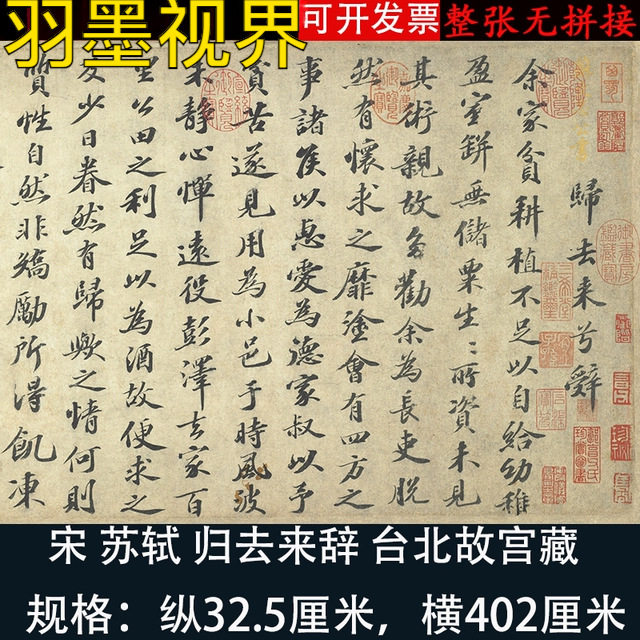 羽墨视界
可开发票
整张无拼接
歸去来兮辭
余家貧耕植不足以自給幼稚
盈室缾無儲粟生〻所資未見
其術親故多勸余為長吏脱
然有懷求之靡塗會有四方之
事諸侯以惠愛為德家叔以予
貧苦遂見用為小邑于時風波
未靜心憚遠役彭澤去家百
里公田之利足以為酒故便求之
及少日眷然有歸歟之情何則
質性自然非矯勵所得飢凍
宋 苏轼 归去来辞 台北故宫藏
规格：纵32.5厘米，横402厘米